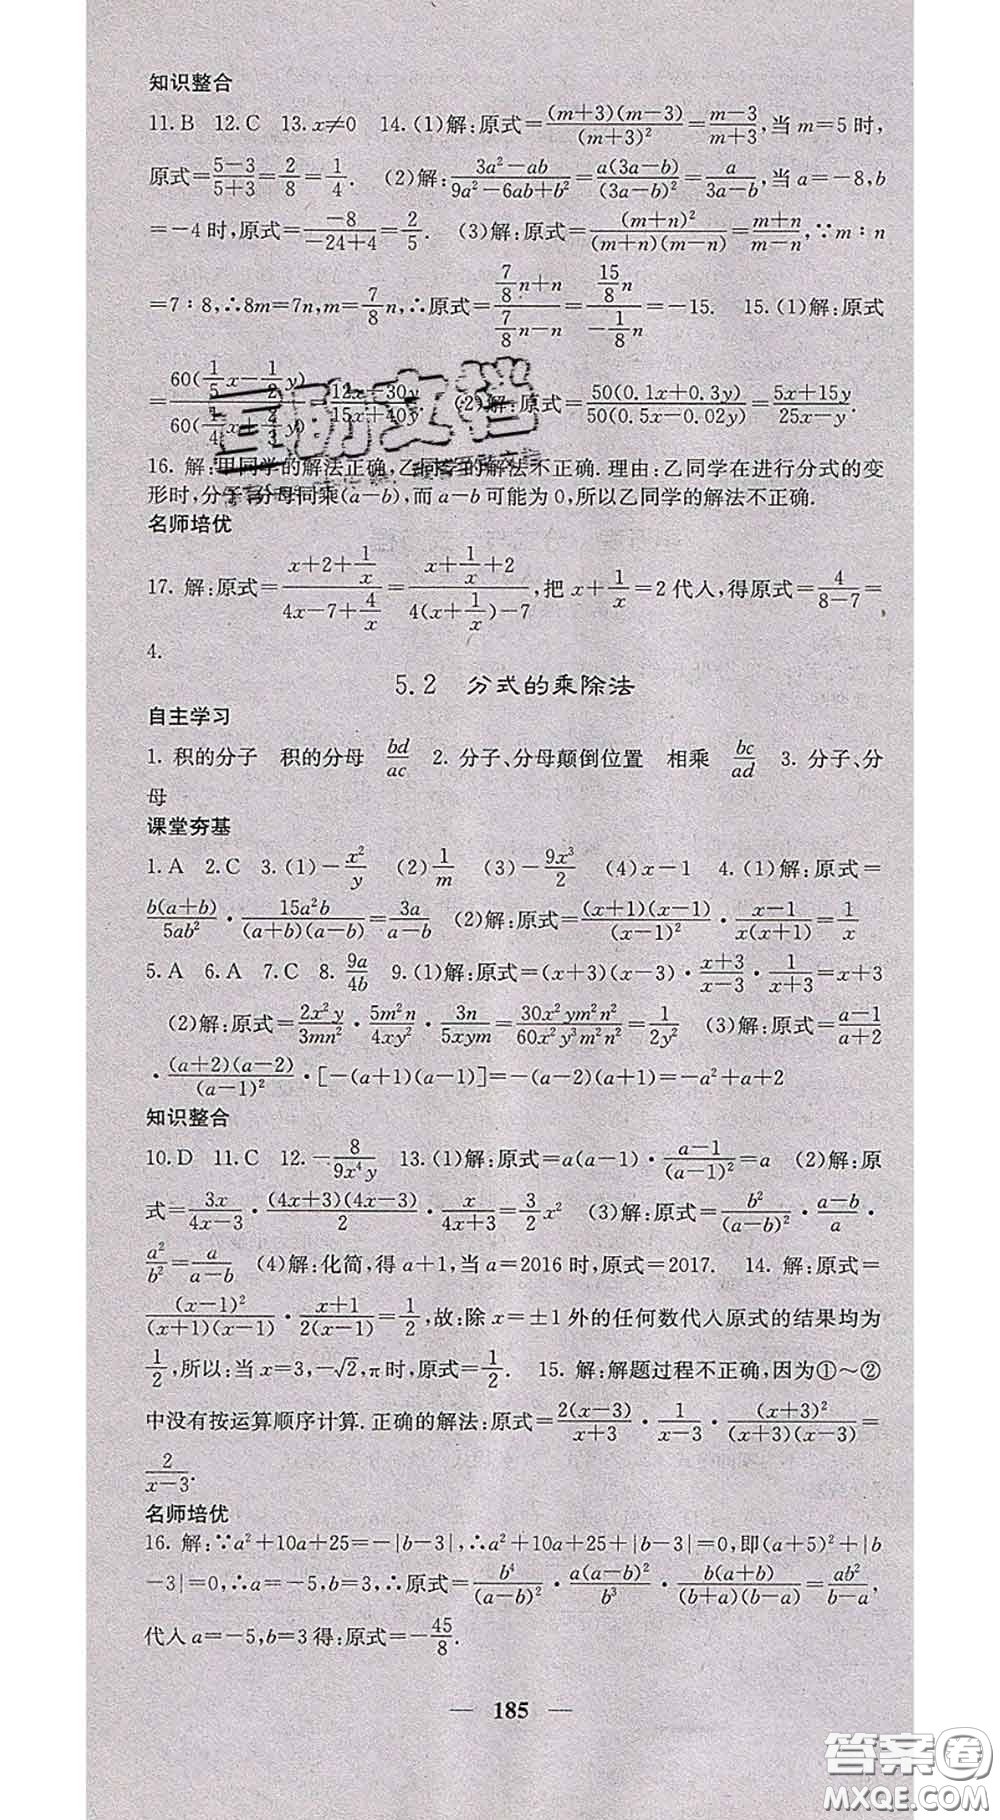 知识整合
11. B 12. C 13. x≠0 14. (1)解:原式=\frac{(m+3)(m-3)}{(m+3)^2}=\frac{m-3}{m+3},当 m=5 时,
原式=\frac{5-3}{5+3}=\frac{2}{8}=\frac{1}{4}. (2)解:\frac{3a^2-ab}{9a^2-6ab+b^2}=\frac{a(3a-b)}{(3a-b)^2}=\frac{a}{3a-b},当 a=-8,b
=-4 时,原式=\frac{-8}{-24+4}=\frac{2}{5}. (3)解:原式=\frac{(m+n)^2}{(m+n)(m-n)}=\frac{m+n}{m-n},∵m∶n
=7∶8,∴8m=7n,m=\frac{7}{8}n,∴原式=\frac{\frac{7}{8}n+n}{\frac{7}{8}n-n}=\frac{\frac{15}{8}n}{-\frac{1}{8}n}=-15. 15. (1)解:原式
=\frac{60(\frac{1}{5}x-\frac{1}{2}y)}{60(\frac{1}{4}x+\frac{2}{3}y)}=\frac{12x-30y}{15x+40y} (2)解:原式=\frac{50(0.1x+0.3y)}{50(0.5x-0.02y)}=\frac{5x+15y}{25x-y}.
16. 解:甲同学的解法正确,乙同学的解法不正确.理由:乙同学在进行分式的变
形时,分子、分母同乘(a-b),而 a-b 可能为 0,所以乙同学的解法不正确.
名师培优
17. 解:原式=\frac{x+2+\frac{1}{x}}{4x-7+\frac{4}{x}}=\frac{x+\frac{1}{x}+2}{4(x+\frac{1}{x})-7},把 x+\frac{1}{x}=2 代入,得原式=\frac{4}{8-7}=
4.
5.2 分式的乘除法
自主学习
1. 积的分子 积的分母 \frac{bd}{ac} 2. 分子、分母颠倒位置 相乘 \frac{bc}{ad} 3. 分子、分
母
课堂夯基
1. A 2. C 3. (1)-\frac{x^2}{y} (2)\frac{1}{m} (3)-\frac{9x^3}{2} (4)x-1 4. (1)解:原式=
\frac{b(a+b)}{5ab^2}·\frac{15a^2b}{(a+b)(a-b)}=\frac{3a}{a-b} (2)解:原式=\frac{(x+1)(x-1)}{(x-1)^2}·\frac{x-1}{x(x+1)}=\frac{1}{x}
5. A 6. A 7. C 8. \frac{9a}{4b} 9. (1)解:原式=(x+3)(x-3)·\frac{x+3}{x-3}·\frac{1}{x+3}=x+3
(2)解:原式=\frac{2x^2y}{3mn^2}·\frac{5m^2n}{4xy^2}·\frac{3n}{5xym}=\frac{30x^2ym^2n^2}{60x^2y^3m^2n^2}=\frac{1}{2y^2} (3)解:原式=\frac{a-1}{a+2}
·\frac{(a+2)(a-2)}{(a-1)^2}·[-(a+1)(a-1)]=-(a-2)(a+1)=-a^2+a+2
知识整合
10. D 11. C 12. -\frac{8}{9x^4y} 13. (1)解:原式=a(a-1)·\frac{a-1}{(a-1)^2}=a (2)解:原
式=\frac{3x}{4x-3}·\frac{(4x+3)(4x-3)}{2}·\frac{x}{4x+3}=\frac{3}{2}x^2 (3)解:原式=\frac{b^2}{(a-b)^2}·\frac{a-b}{a}·
\frac{a^2}{b^2}=\frac{a}{a-b} (4)解:化简,得 a+1,当 a=2016 时,原式=2017. 14. 解:原式=
\frac{(x-1)^2}{(x+1)(x-1)}·\frac{x+1}{2(x-1)}=\frac{1}{2},故:除 x=±1 外的任何数代入原式的结果均为
\frac{1}{2},所以:当 x=3,-√2,π 时,原式=\frac{1}{2}. 15. 解:解题过程不正确,因为①～②
中没有按运算顺序计算.正确的解法:原式=\frac{2(x-3)}{x+3}·\frac{1}{x-3}·\frac{(x+3)^2}{(x+3)(x-3)}=
\frac{2}{x-3}.
名师培优
16. 解:∵a^2+10a+25=-|b-3|,∴a^2+10a+25+|b-3|=0,即(a+5)^2+|b
-3|=0,∴a=-5,b=3,∴原式=\frac{b^4}{(a-b)^2}·\frac{a(a-b)^2}{b^3}·\frac{b(a+b)}{(b+a)(b-a)}=\frac{ab^2}{b-a},
代入 a=-5,b=3 得:原式=-\frac{45}{8}.
— 185 —
答案圈
MXQE.COM